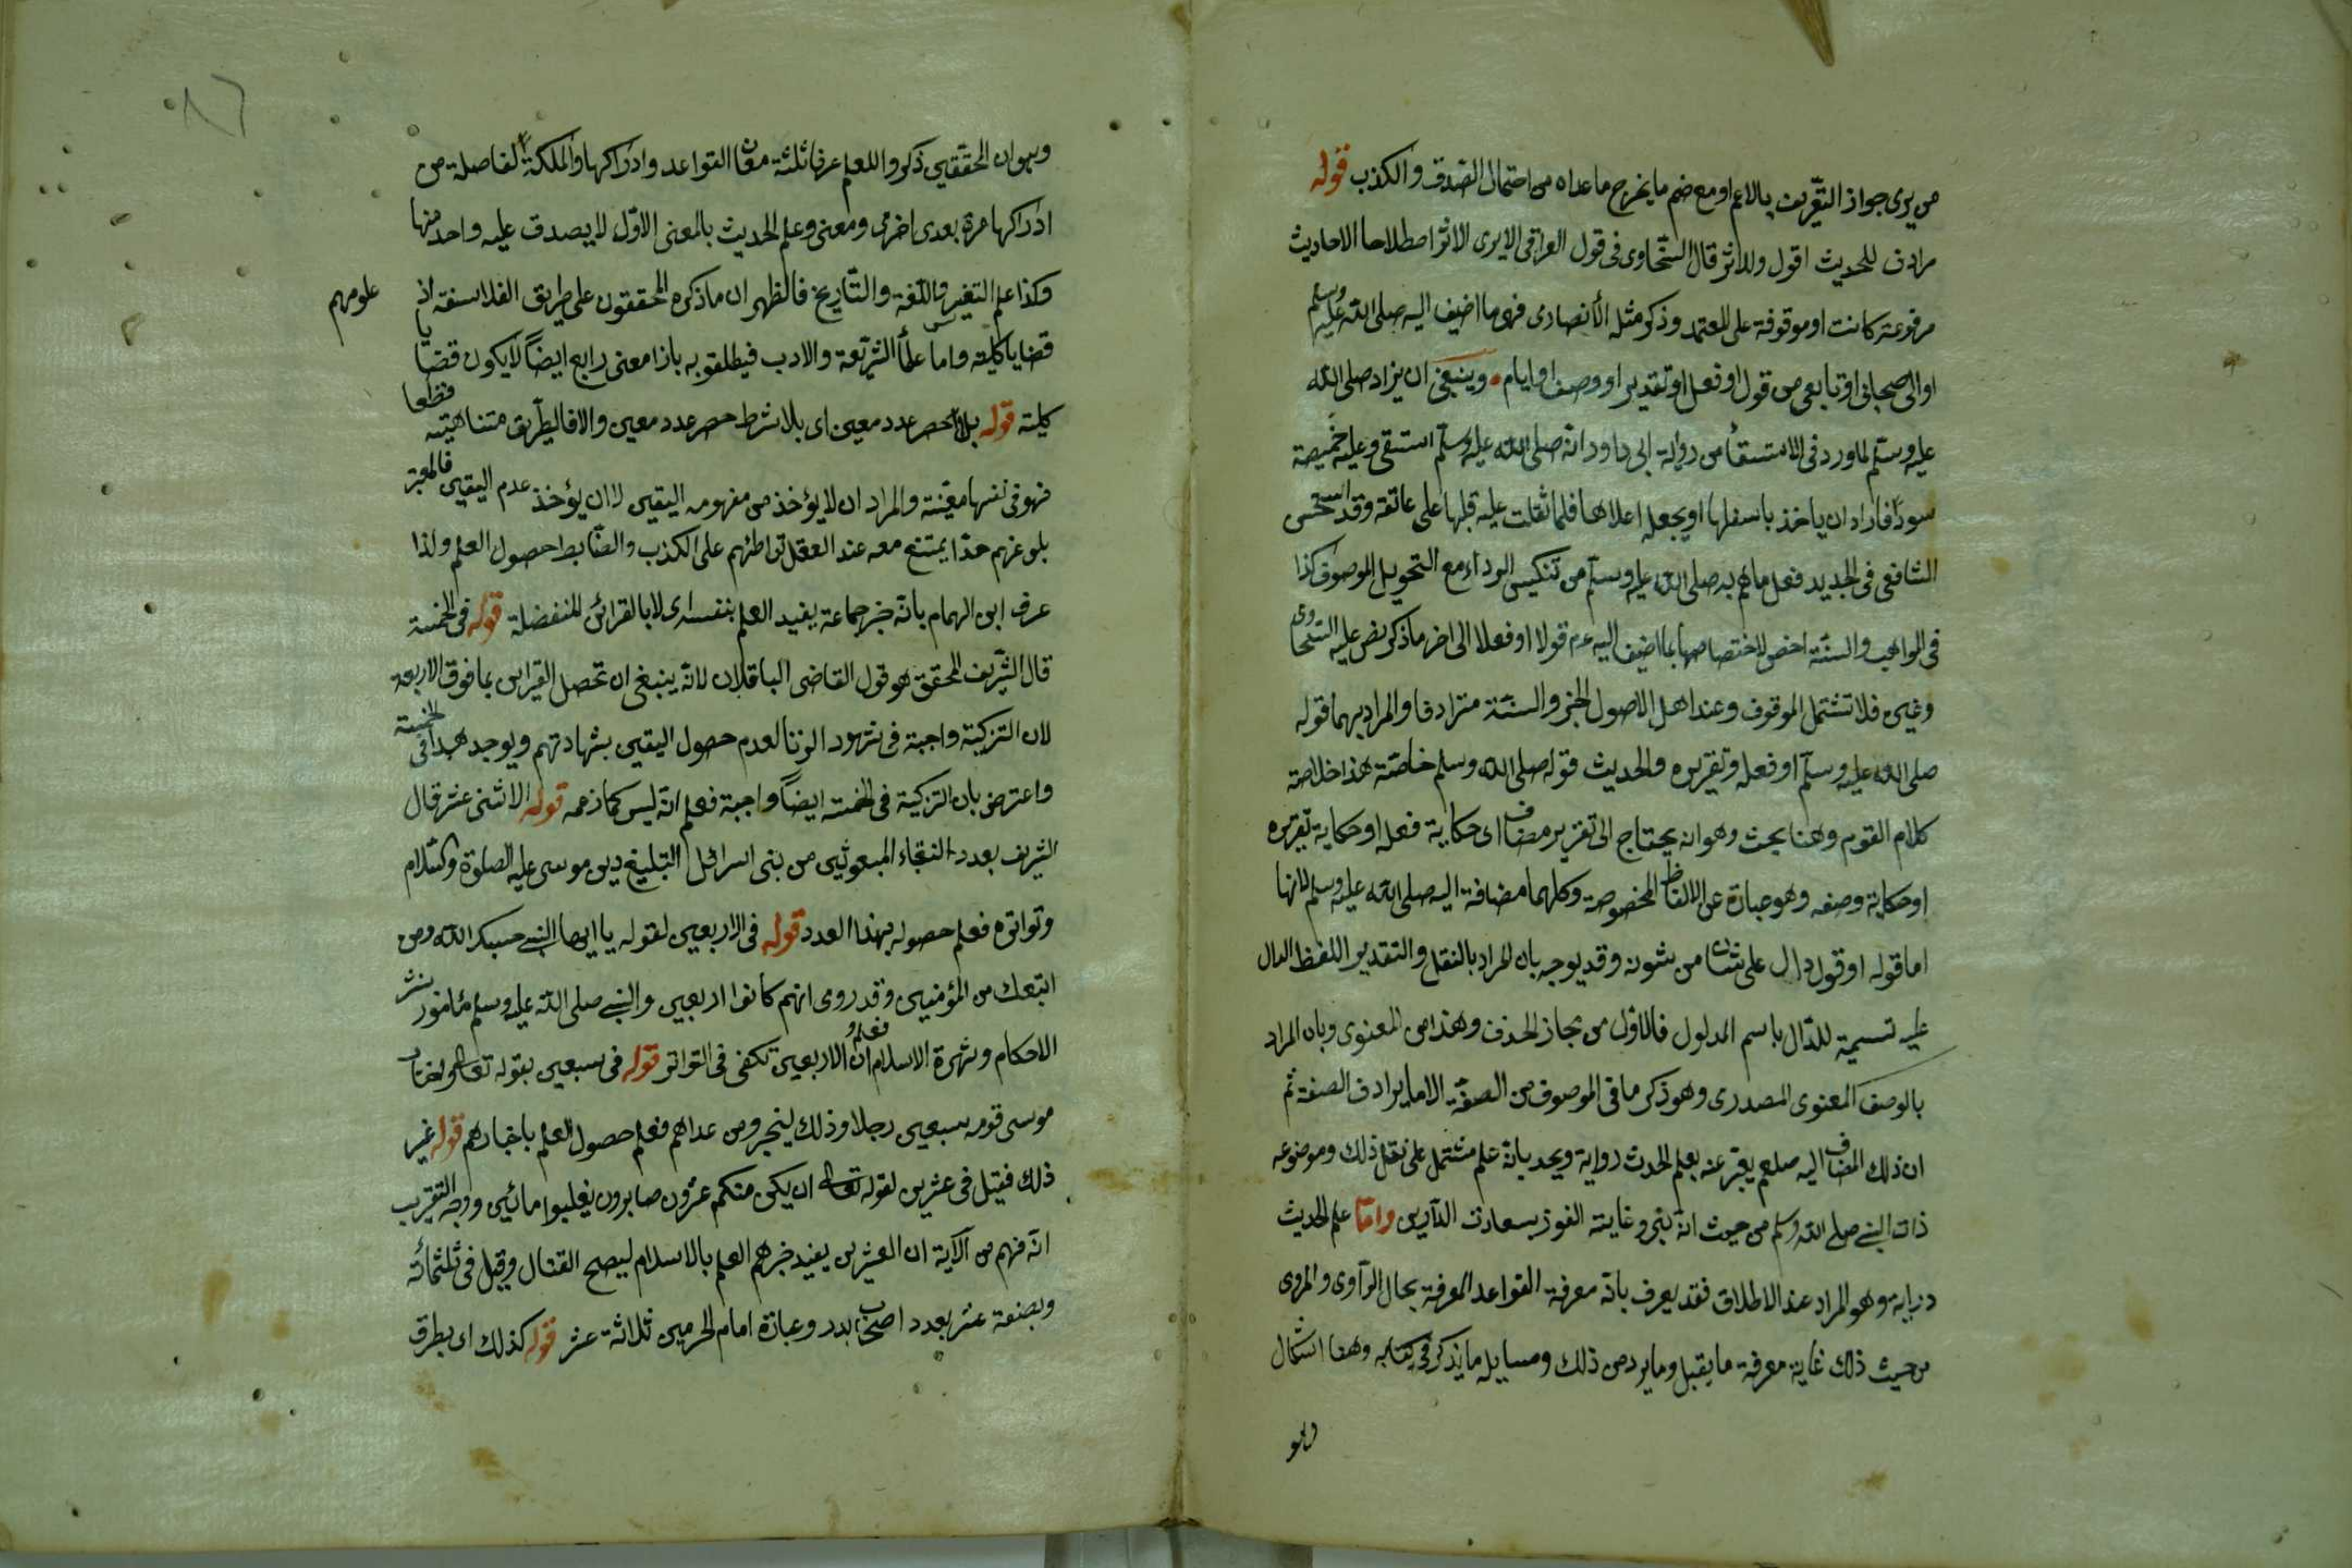 من يرى جواز التعريف بالاعم او مع ضم ما يخرج ما عداه من احتمال الصدق والكذب قوله
مرادف للحديث اقول وللاثر قال السخاوى فى قول العراقى الايرى الاثر اصطلاحا الاحاديث
مرفوعة كانت او موقوفة على المعتمد وذكر مثله الأنصارى فهى ما اضيف اليه صلى الله عليه وسلم
او الى صحابى او تابعى من قول او فعل او تقدير او وصف او ايام وينبغى ان يزاد صلى الله
عليه وسلم لما ورد فى الاستسقأ من رواية ابى داود انه صلى الله عليه وسلم استسقى وعليه خميصة
سودأ فاراد ان ياخذ باسفلها او يجعل اعلاها فلما ثقلت عليه قلبها على عاتقه وقد استحسن
الشافعى فى الجديد فعل ما هم به صلى الله عليه وسلم من تنكيس الرداء مع التحويل الموصوف كذا
فى المواهب والسنة اخص لاختصاصها بما اضيف اليه عم قولا او فعلا الى اخر ما ذكر نص عليه السخاوى
وغيره فلا تشتمل الموقوف وعند اهل الاصول الخبر والسنة مترادفا والمراد بهما قوله
صلى الله عليه وسلم او فعله وتقريره والحديث قوله صلى الله وسلم خاصة هذا خلاصة
كلام القوم وهنا بحث وهو انه يحتاج الى تقرير مضاف اى حكاية فعله او حكاية تقريره
او حكاية وصفه وهو عبارة عن الالفاظ المخصوصة وكلهما مضافة اليه صلى الله عليه وسلم لانها
اما قوله او قول دال على شان من شونه وقد يوجه بان المراد بالنقل والتقدير اللفظ الدال
عليه تسمية للدال باسم المدلول فالاول من مجاز الحذف وهذا من المعنوى وبان المراد
بالوصف المعنوى المصدرى وهو ذكر ما فى الموصوف من الصفة الاما يرادف الصفة ثم
ان ذلك المضاف اليه صلعم يعبر عنه بعلم الحدث رواية ويحد بانه علم مشتمل على نقل ذلك وموضوعه
ذات النبى صلى الله وسلم من حيث انه نبى وغايته الفوز بسعادت الدارين واما علم الحديث
دراية وهو المراد عند الاطلاق فقد يعرف بانه معرفة القواعد المعرفة بحال الراوى والمروى
من حيث ذلك غاية معرفة ما يقبل وما يرد من ذلك ومسايله ما يذكر فى كتابه وهنا اشكال
وهو
وهو ان المحققين ذكروا للعلم عرفا ثلثة معان القواعد وادراكها والملكة الفاصلة من
ادراكها مرة بعدى اخرى ومعنى وعلم الحديث بالمعنى الاول لا يصدق عليه واحد منها
وكذا علم التغير واللغة والتاريخ فالظهر ان ما ذكره المحققون على طريق الفلاسفة اذ علومهم
قضايا كلية واما علمأ الشريعة والادب فيطلقو به بازا معنى رابع ايضاً لا يكون قضايا
كلية قوله بلا حصر عدد معين اى بلا شرط حصر عدد معين والا فالطريق متناهية قطعا
فهو فى نفسها معينة والمراد ان لا يؤخذ من مفهومه اليقين لا ان يؤخذ عدم اليقين فالمعتبر
بلوغهم حدا يمتنع معه عند العقل تواطئهم على الكذب والضابط احصول العلم ولذا
عرف ابن الهمام بانه خبر جماعة يفيد العلم بنفسه اى لا بالقرائن المنفصلة قوله فى الخمسة
قال الشريف المحقق هو قول القاضى الباقلان لانه ينبغى ان تحصل القراين بما فوق الاربعة
لان التزكية واجبة فى شهود الزنا لعدم حصول اليقين بشهادتهم ويوجد هذا فى الخمسة
واعترض بان التزكية فى الخمسة ايضاً واجبة فعلم انه ليس كما زعمه قوله الاثنى عشر قال
الشريف بعدد النقباء المبعوثين من بنى اسرائل التبليغ دين موسى عليه الصلوة والسلام
وتواتره فعلم حصوله بهذا العدد قوله فى الاربعين لقوله يا ايها النبى حسبك الله ومن
اتبعك من المؤمنين وقد روى انهم كانوا اربعين والنبى صلى الله عليه وسلم مأمور بنشر
الاحكام وشهرة الاسلام فعلم ان الاربعين تكفى فى التواتر قوله فى سبعين بقوله تعالى واختار
موسى قومه سبعين رجلا وذلك ليخبر ومن عداهم فعلم حصول العلم باخبارهم قوله غير
ذلك فقيل فى عشرين لقوله تعالى ان يكن منكم عشرون صابرون يغلبوا مائتين ووجه التقريب
انه فهم من الآية ان العشرين يفيد خبرهم العلم بالاسلام ليصح القتال وقيل فى ثلثمائة
وبضعة عشر بعدد اصحاب بدر وعبارة امام الحرمين ثلاثة عشر قوله كذلك اى بطرق